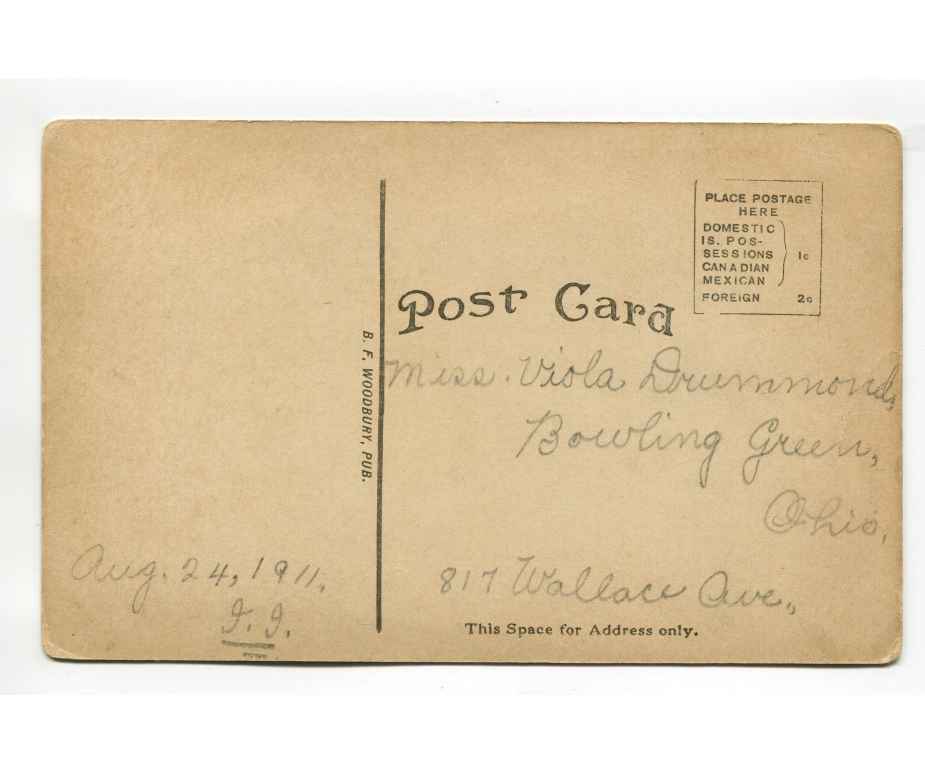 PLACE POSTAGE
HERE
DOMESTIC
IS. POS-
SESSIONS
CANADIAN
MEXICAN
1c
FOREIGN 2c
Post Card
B. F. WOODBURY, PUB.
Miss. Viola Drummond,
Bowling Green,
Ohio,
817 Wallace Ave.,
Aug. 24, 1911.
This Space for Address only.